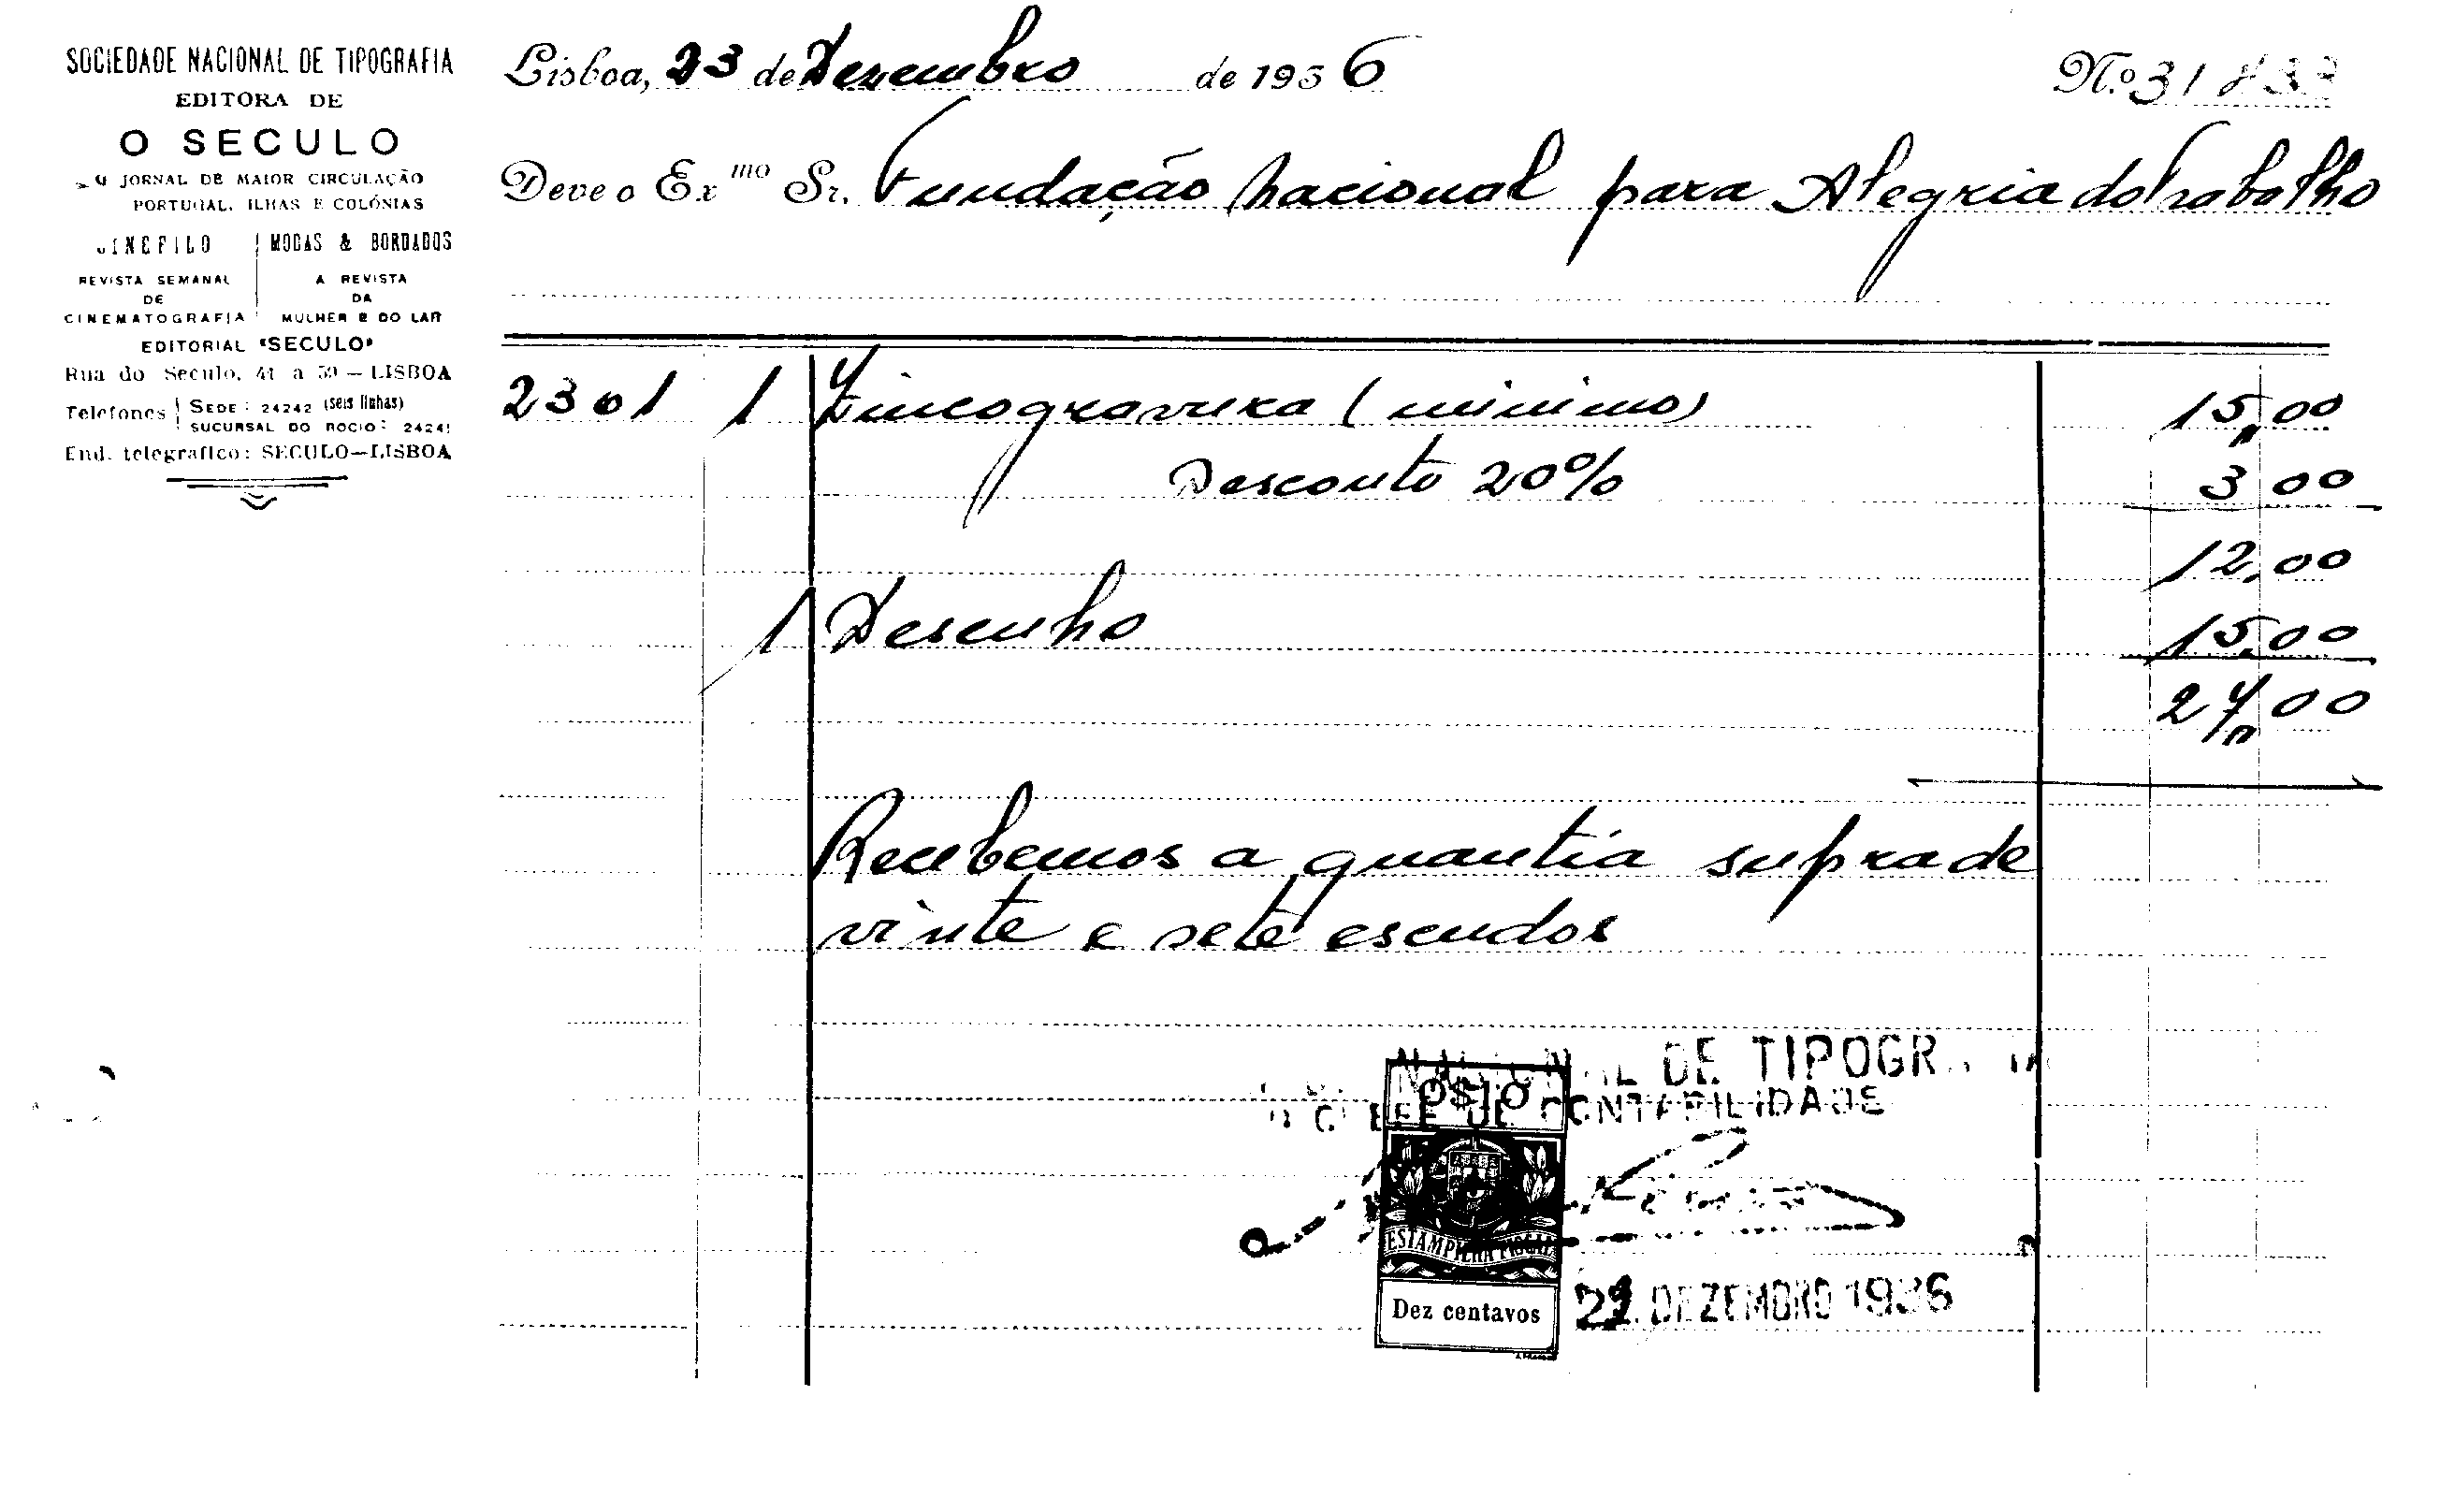 SOCIEDADE NACIONAL DE TIPOGRAFIA
EDITORA DE
O SECULO
O JORNAL DE MAIOR CIRCULAÇÃO
PORTUGAL, ILHAS E COLÓNIAS
CINEFILO
REVISTA SEMANAL
DE
CINEMATOGRAFIA
MODAS & BORDADOS
A REVISTA
DA
MULHER E DO LAR
EDITORIAL "SECULO"
Rua do Seculo, 41 a 59 — LISBOA
Telefones
SEDE: 24242 (seis linhas)
SUCURSAL DO ROCIO: 24241
End. telegrafico: SECULO—LISBOA
Lisboa, 23 de Dezembro de 1936
N.º 318
Deve o Ex.mo Sr. Fundação Nacional para Alegria do Trabalho
2301 1 Zincogravura (minimo) 15,00
Desconto 20% 3 00
12,00
1 Desenho 15,00
27,00
Recebemos a quantia supra de
vinte e sete escudos
NACIONAL DE TIPOGRAFIA
O CHEFE DE CONTABILIDADE
0$10
ESTAMPILHA FISCAL
Dez centavos
DEZEMBRO 1936